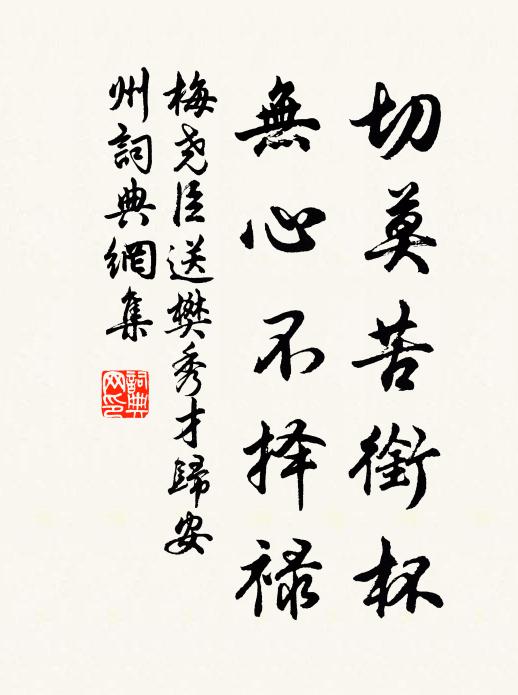 切莫苦銜杯
無心不择禄
梅尧臣送樊秀才歸安
州詞典網集
詞典网印